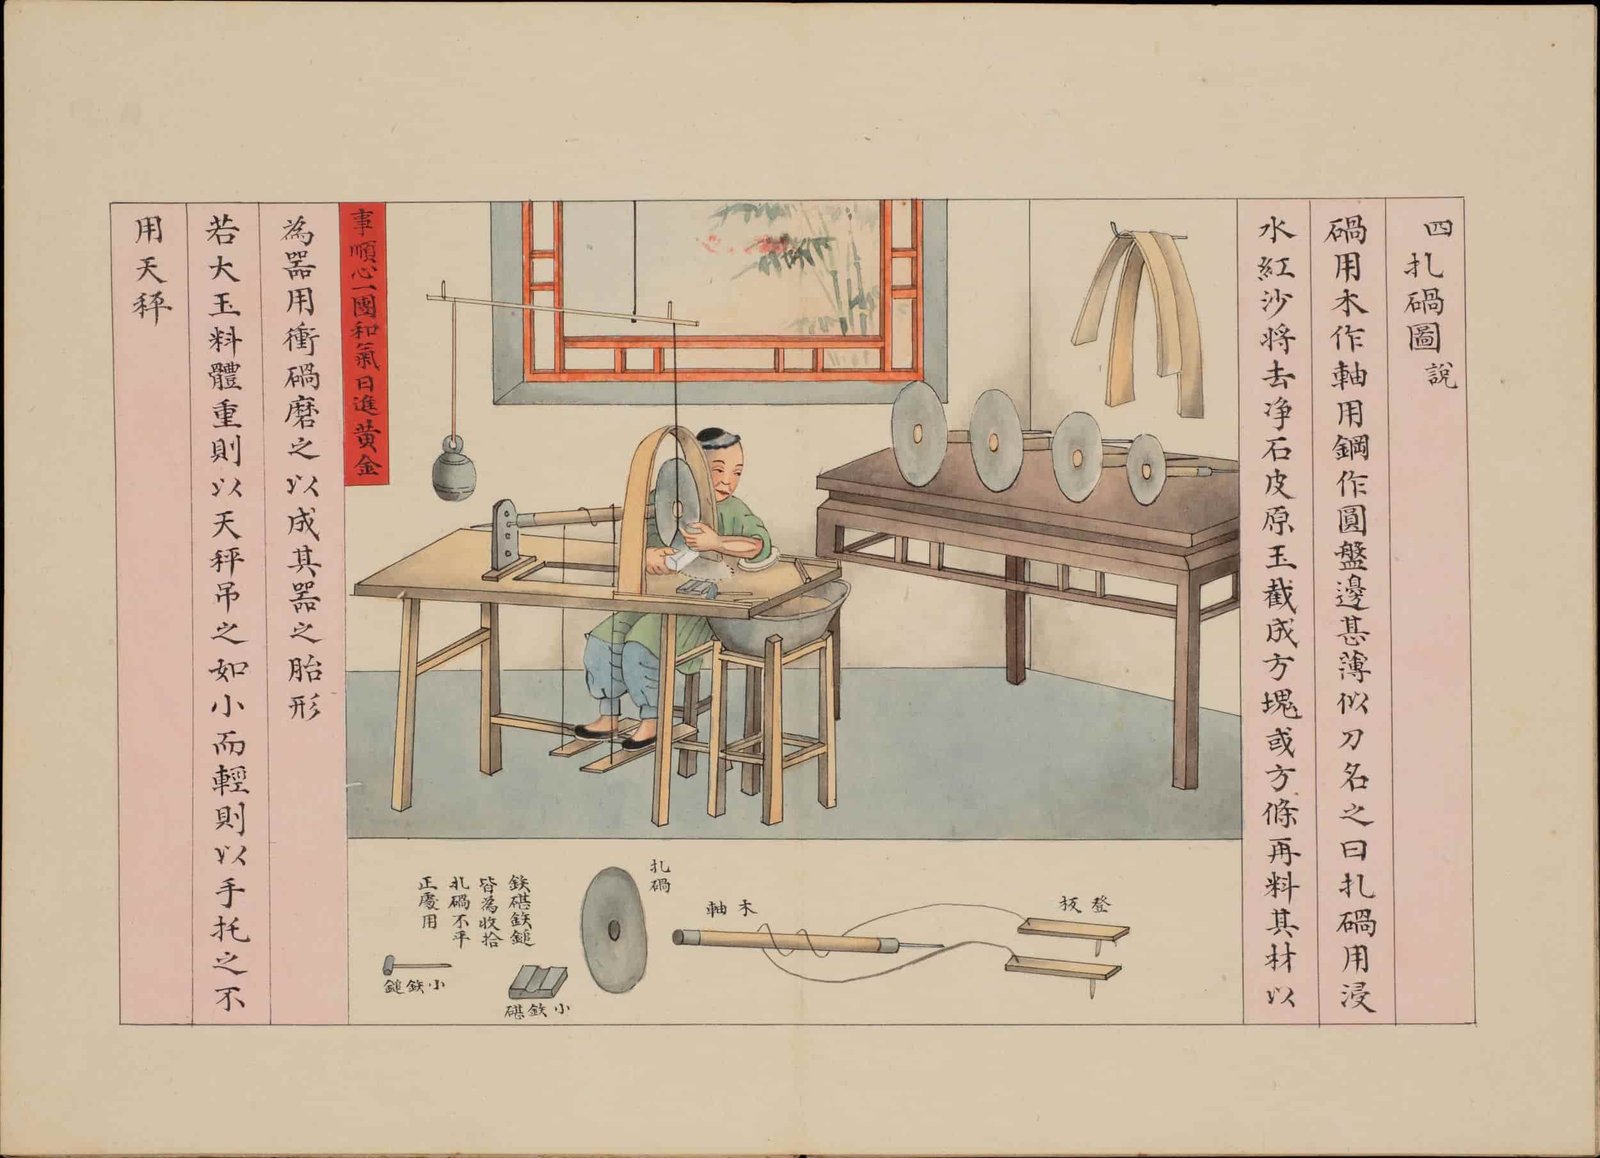 四扎碢圖說
碢用木作軸用鋼作圓盤邊甚薄似刀名之曰扎碢用浸
水紅沙將去净石皮原玉截成方塊或方條再料其材以
為器用衝碢磨之以成其器之胎形
若大玉料體重則以天秤吊之如小而輕則以手托之不
用天秤
事順心一團和氣日進黃金
扎碢
木軸
登板
鉄碪鉄鎚
皆為收拾
扎碢不平
正處用
小鉄鎚
小鉄碪